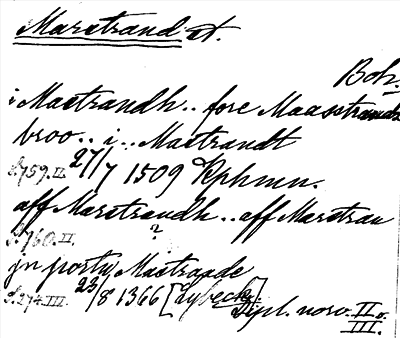 Marstrand st.
Boh.
i Mastrandh.. fore Maasstrands
broo.. i... Mastrandt
S.759.II. 27/7 1509 Kphmn.
aff Marstrandh.. aff Marstran
S.760.II. ?
jn portu Mastraade
S.274.III. 23/8 1366 [Lybeck]. Dipl. norv. II o.
III.